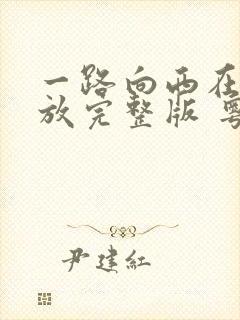 一路向西在
放完整版 粤
尹建红